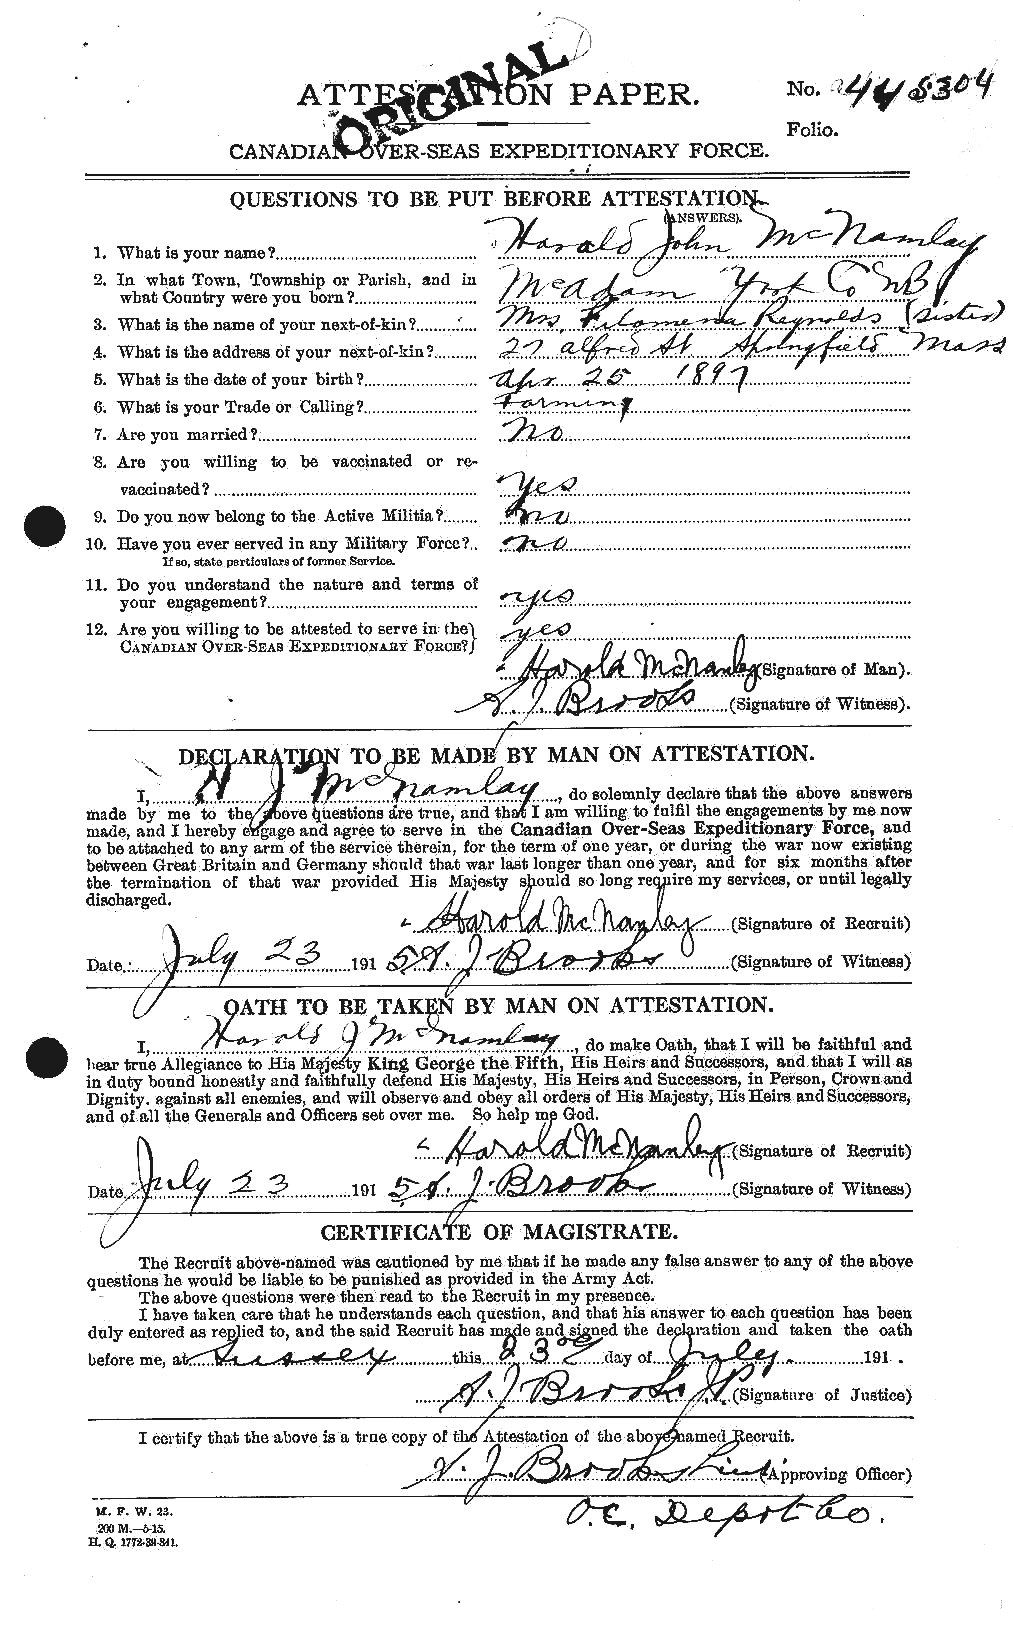 ORIGINAL
ATTESTATION PAPER.
No. 448304
Folio.
CANADIAN OVER-SEAS EXPEDITIONARY FORCE.
QUESTIONS TO BE PUT BEFORE ATTESTATION.
(ANSWERS).
1. What is your name? Harald John McNamlay
2. In what Town, Township or Parish, and in
what Country were you born? McAdam York Co NB
3. What is the name of your next-of-kin? Mrs. Filomena Reynolds (sister)
4. What is the address of your next-of-kin? 27 Alfred St. Springfield Mass
5. What is the date of your birth? Apr 25 1897
6. What is your Trade or Calling? Farming
7. Are you married? No
8. Are you willing to be vaccinated or re-
vaccinated? Yes
9. Do you now belong to the Active Militia? no
10. Have you ever served in any Military Force? no
If so, state particulars of former Service.
11. Do you understand the nature and terms of
your engagement? yes
12. Are you willing to be attested to serve in the
CANADIAN OVER-SEAS EXPEDITIONARY FORCE? yes
Harold McNamley (Signature of Man).
J. Brooks (Signature of Witness).
DECLARATION TO BE MADE BY MAN ON ATTESTATION.
I, H J McNamlay, do solemnly declare that the above answers
made by me to the above questions are true, and that I am willing to fulfil the engagements by me now
made, and I hereby engage and agree to serve in the Canadian Over-Seas Expeditionary Force, and
to be attached to any arm of the service therein, for the term of one year, or during the war now existing
between Great Britain and Germany should that war last longer than one year, and for six months after
the termination of that war provided His Majesty should so long require my services, or until legally
discharged.
Harold McNamley (Signature of Recruit)
Date: July 23 1915 J. Brooks (Signature of Witness)
OATH TO BE TAKEN BY MAN ON ATTESTATION.
I, Harald J McNamlay, do make Oath, that I will be faithful and
bear true Allegiance to His Majesty King George the Fifth, His Heirs and Successors, and that I will as
in duty bound honestly and faithfully defend His Majesty, His Heirs and Successors, in Person, Crown and
Dignity, against all enemies, and will observe and obey all orders of His Majesty, His Heirs and Successors,
and of all the Generals and Officers set over me. So help me God.
Harold McNamley (Signature of Recruit)
Date July 23 1915 J. Brooks (Signature of Witness)
CERTIFICATE OF MAGISTRATE.
The Recruit above-named was cautioned by me that if he made any false answer to any of the above
questions he would be liable to be punished as provided in the Army Act.
The above questions were then read to the Recruit in my presence.
I have taken care that he understands each question, and that his answer to each question has been
duly entered as replied to, and the said Recruit has made and signed the declaration and taken the oath
before me, at Sussex this 23rd day of July 191 .
J Brooks J.P. (Signature of Justice)
I certify that the above is a true copy of the Attestation of the above-named Recruit.
J. Brooks Lieut (Approving Officer)
O.C. Depot Co.
M. F. W. 23.
200 M.—5-15.
H. Q. 1772-39-841.